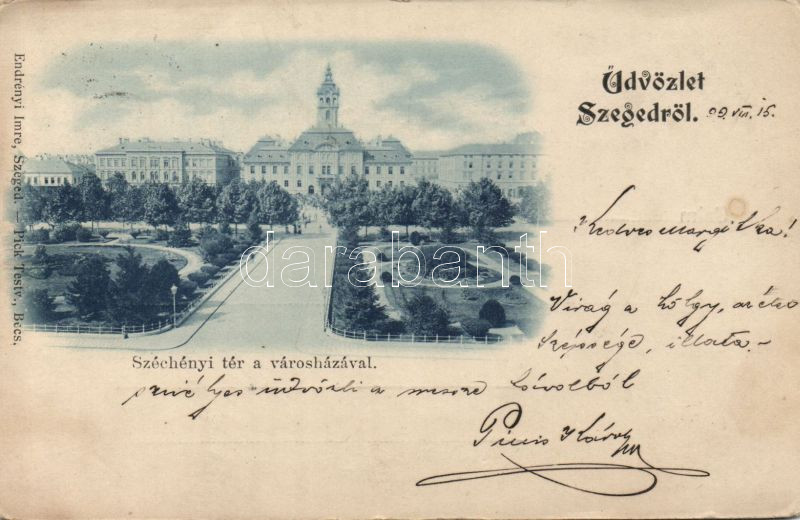 Üdvözlet
Szegedről.
99. VIII. 15.
Endrényi Imre, Szeged. — Pick Testv., Bécs.
Kedves Margitka!
Virág a hölgy, arczra
szépsége, illata.
darabanth
Széchényi tér a városházával.
szivélyes üdvözli a messze távolból
Károly